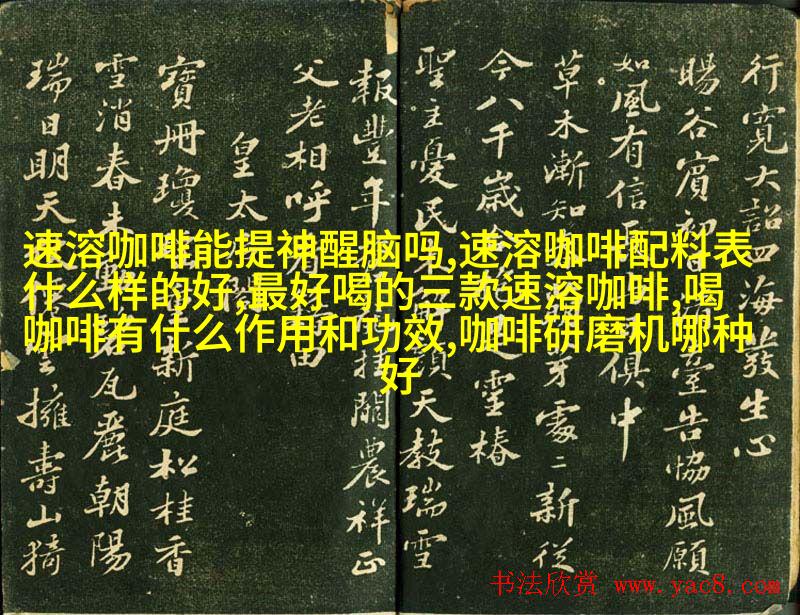 行寬大詔四海發生心
暘谷賓初日臺告協風願
如風有信俱中
草木漸知芽處〻新從
今八千歲靈椿
聖主憂民天教瑞雪
報豐年關農祥正
父老相呼
皇太
寶冊瓊新庭松桂香
雪消春未瓦麗朝陽
瑞日明天擁壽山猗
速溶咖啡能提神醒脑吗,速溶咖啡配料表
什么样的好,最好喝的三款速溶咖啡,喝
咖啡有什么作用和功效,咖啡研磨机哪种
好
书法欣赏 www.yac8.com